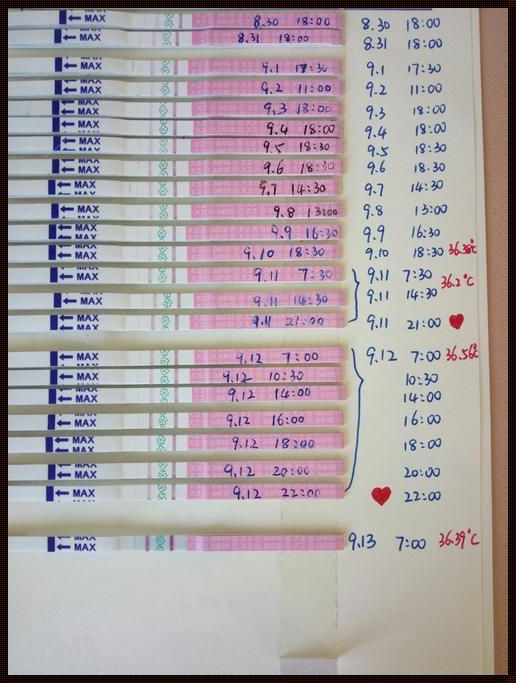 MAX 8.30 18:00 8.30 18:00
MAX 8.31 18:00 8.31 18:00
MAX 9.1 17:30 9.1 17:30
MAX 9.2 11:00 9.2 11:00
MAX 9.3 18:00 9.3 18:00
MAX 9.4 18:00 9.4 18:00
MAX 9.5 18:30 9.5 18:30
MAX 9.6 18:30 9.6 18:30
MAX 9.7 14:30 9.7 14:30
MAX 9.8 13:00 9.8 13:00
MAX 9.9 16:30 9.9 16:30
MAX 9.10 18:30 9.10 18:30 36.38°C
MAX 9.11 7:30 9.11 7:30 36.2°C
MAX 9.11 14:30 9.11 14:30
MAX 9.11 21:00 9.11 21:00
MAX 9.12 7:00 9.12 7:00 36.56℃
MAX 9.12 10:30 10:30
MAX 9.12 14:00 14:00
MAX 9.12 16:00 16:00
MAX 9.12 18:00 18:00
MAX 9.12 20:00 20:00
MAX 9.12 22:00 22:00
MAX 9.13 7:00 36.39°C